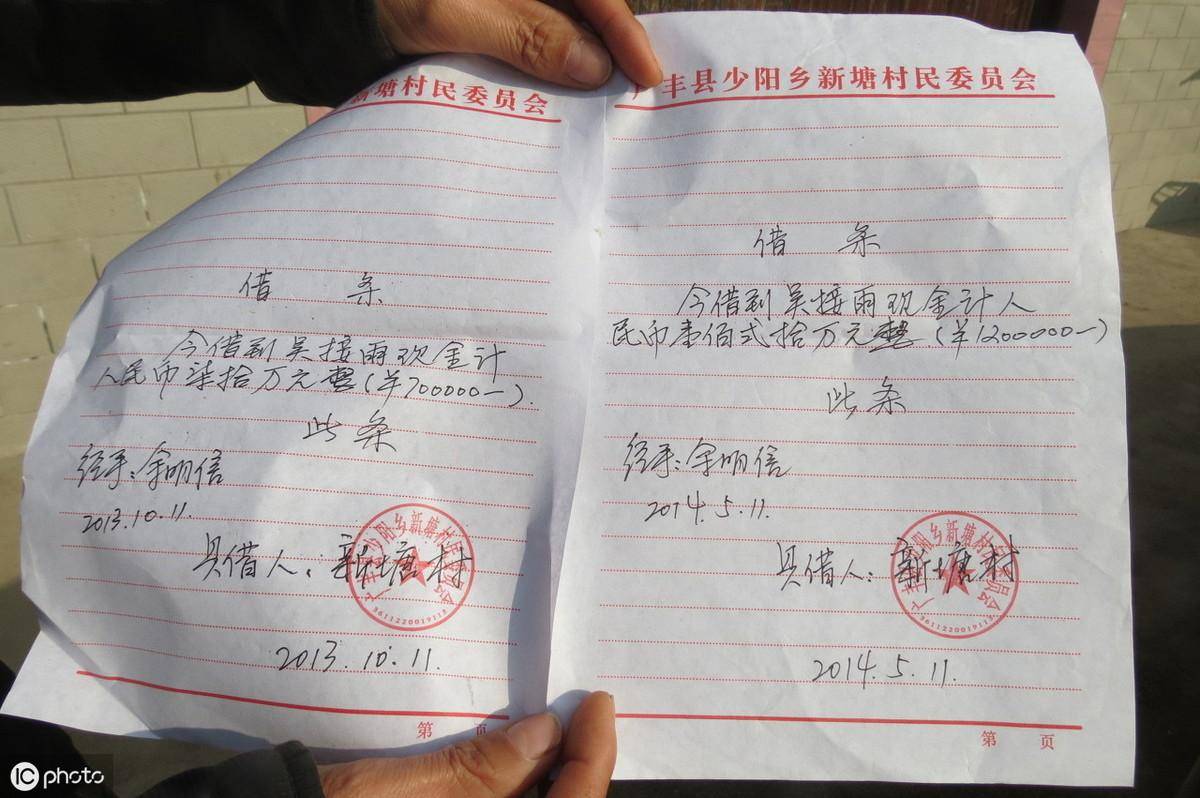 塘村民委员会
借 条
今借到吴接雨现金计
人民币柒拾万元整(¥700000—).
此条
经手:余明信
2013.10.11.
具借人:新塘村
3611220019113
2013.10.11.
第 页
丰县少阳乡新塘村民委员会
借 条
今借到吴接雨现金计人
民币壹佰弍拾万元整(¥1200000—)
此条
经手:余明信
2014.5.11.
具借人:新塘村
3611220019113
2014.5.11.
第 页
IC photo